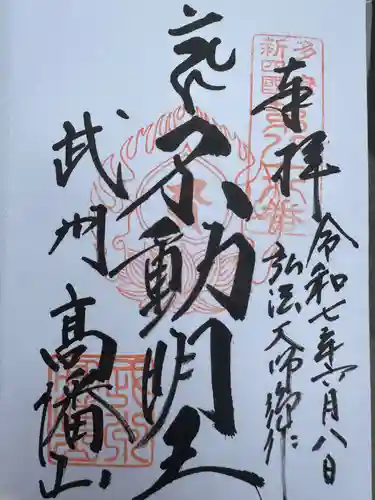 奉拝
令和七年六月八日
弘法大師御作
元不動明王
武州
高幡山